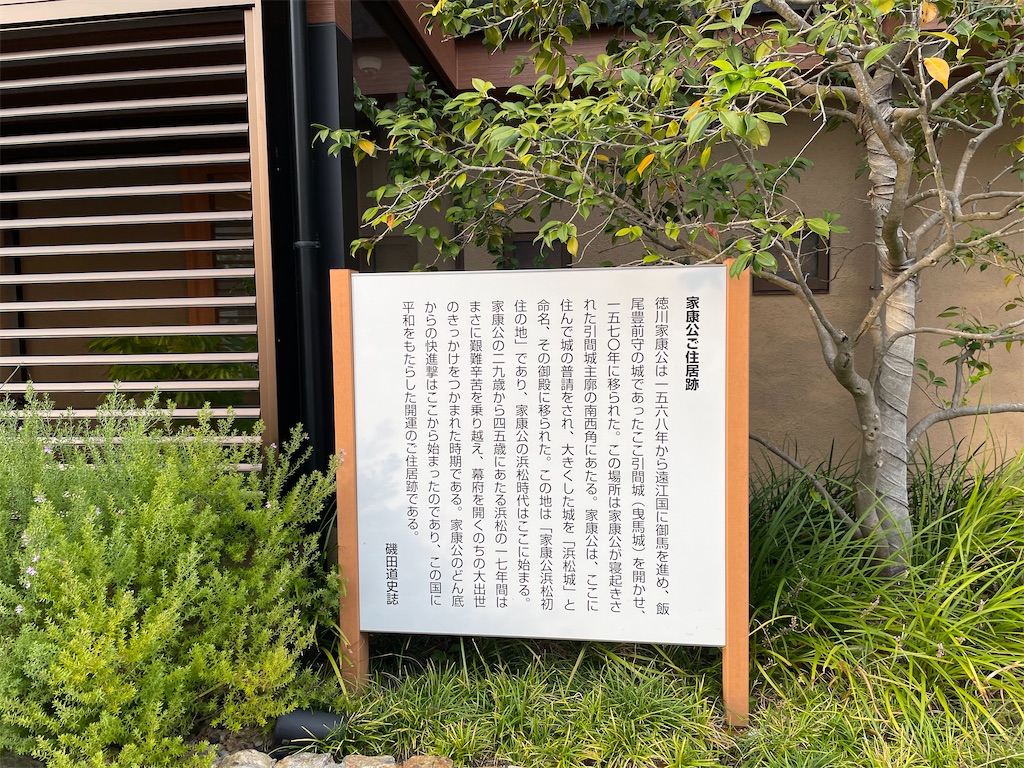 家康公ご住居跡
徳川家康公は一五六八年から遠江国に御馬を進め、飯
尾豊前守の城であったここ引間城（曳馬城）を開かせ、
一五七〇年に移られた。この場所は家康公が寝起きさ
れた引間城主廓の南西角にあたる。家康公は、ここに
住んで城の普請をされ、大きくした城を「浜松城」と
命名、その御殿に移られた。この地は「家康公浜松初
住の地」であり、家康公の浜松時代はここに始まる。
家康公の二九歳から四五歳にあたる浜松の一七年間は
まさに艱難辛苦を乗り越え、幕府を開くのちの大出世
のきっかけをつかまれた時期である。家康公のどん底
からの快進撃はここから始まったのであり、この国に
平和をもたらした開運のご住居跡である。
磯田道史誌